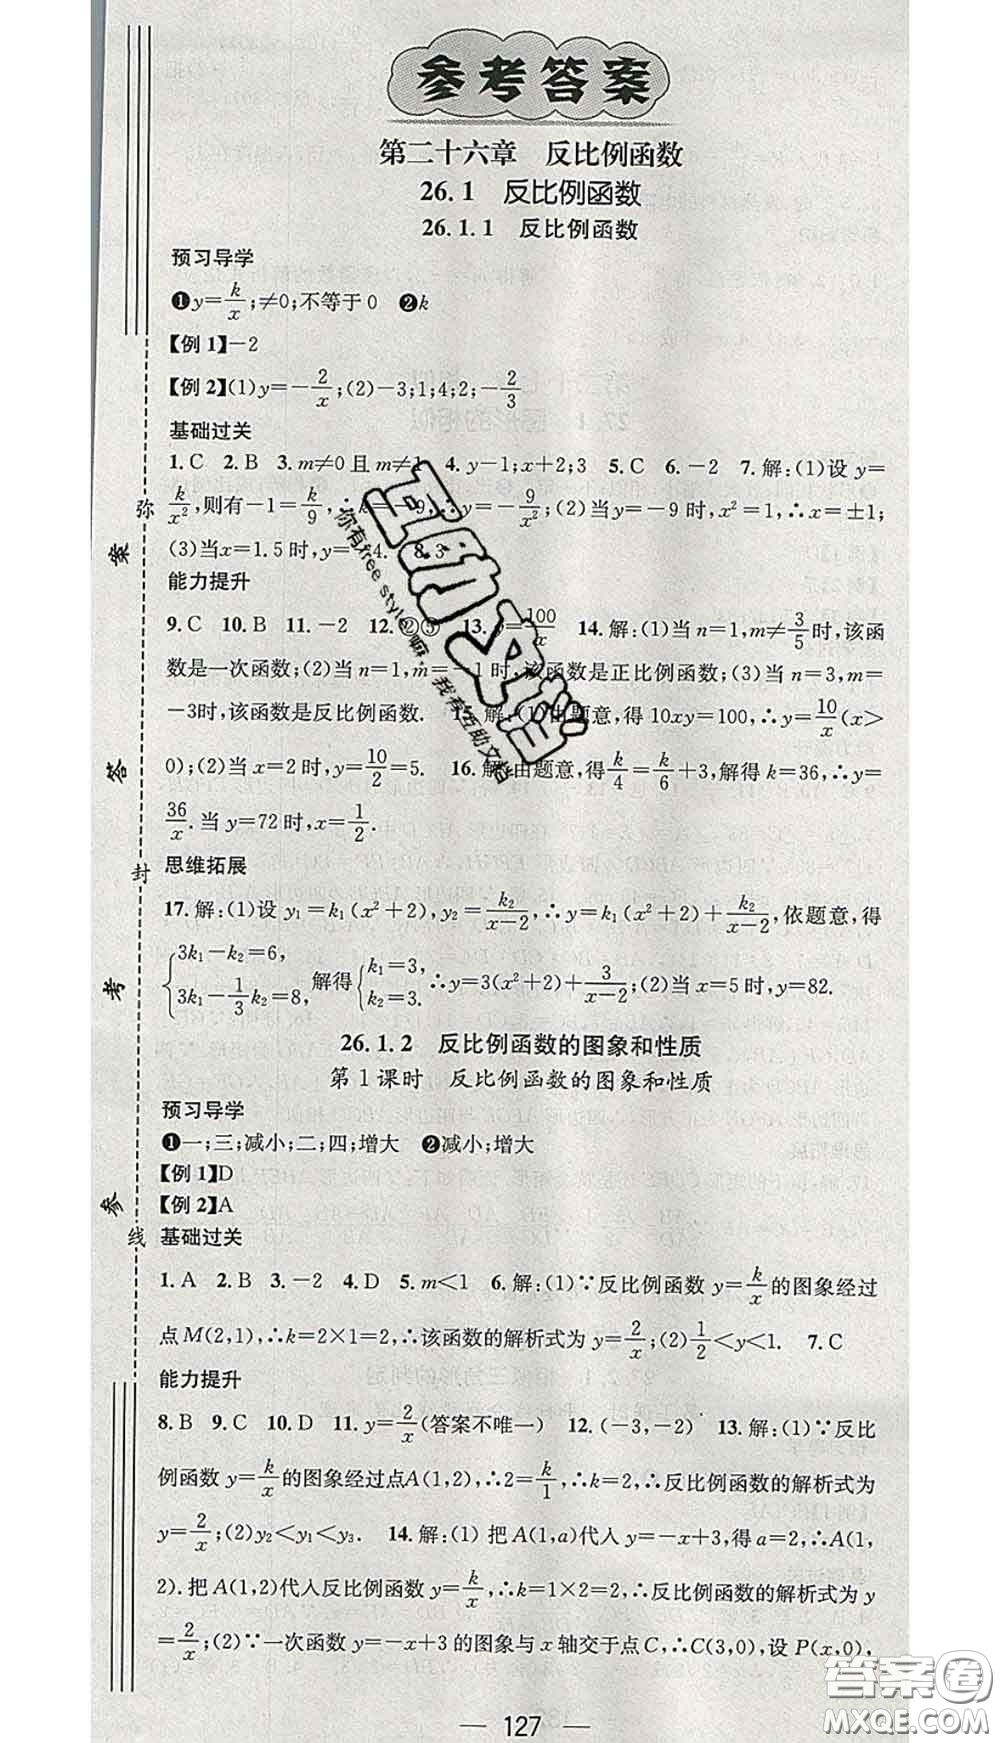 参考答案
第二十六章 反比例函数
26.1 反比例函数
26.1.1 反比例函数
预习导学
❶y=k/x;≠0;不等于0 ❷k
【例1】-2
【例2】(1)y=-2/x;(2)-3;1;4;2;-2/3
基础过关
1.C 2.B 3.m≠0且m≠1 4.y-1;x+2;3 5.C 6.-2 7.解:(1)设y=
k/x²,则有-1=k/9,∴k=-9,∴y=-9/x²;(2)当y=-9时,x²=1,∴x=±1;
(3)当x=1.5时,y= 4. 8.3
能力提升
9.C 10.B 11.-2 12.②⑤ 13. =100/x 14.解:(1)当n=1,m≠3/5时,该函
数是一次函数;(2)当n=1,m=-1时,该函数是正比例函数;(3)当n=3,m=
-3时,该函数是反比例函数. 15.解:(1)由题意,得10xy=100,∴y=10/x(x>
0);(2)当x=2时,y=10/2=5. 16.解:由题意,得k/4=k/6+3,解得k=36,∴y=
36/x.当y=72时,x=1/2.
思维拓展
17.解:(1)设y₁=k₁(x²+2),y₂=k₂/(x-2),∴y=k₁(x²+2)+k₂/(x-2),依题意,得
{3k₁-k₂=6, 3k₁-1/3k₂=8, 解得{k₁=3, k₂=3. ∴y=3(x²+2)+3/(x-2);(2)当x=5时,y=82.
26.1.2 反比例函数的图象和性质
第1课时 反比例函数的图象和性质
预习导学
❶一;三;减小;二;四;增大 ❷减小;增大
【例1】D
【例2】A
基础过关
1.A 2.B 3.-2 4.D 5.m<1 6.解:(1)∵反比例函数y=k/x的图象经过
点M(2,1),∴k=2×1=2,∴该函数的解析式为y=2/x;(2)1/2<y<1. 7.C
能力提升
8.B 9.C 10.D 11.y=2/x(答案不唯一) 12.(-3,-2) 13.解:(1)∵反比
例函数y=k/x的图象经过点A(1,2),∴2=k/1,∴k=2,∴反比例函数的解析式为
y=2/x;(2)y₂<y₁<y₃. 14.解:(1)把A(1,a)代入y=-x+3,得a=2,∴A(1,
2).把A(1,2)代入反比例函数y=k/x,∴k=1×2=2,∴反比例函数的解析式为y
=2/x;(2)∵一次函数y=-x+3的图象与x轴交于点C,∴C(3,0),设P(x,0),
— 127 —
弥
封
线
参
考
答
案
互助文档
你有free style嘛 我有互助文档
答案圈
MXQE.COM